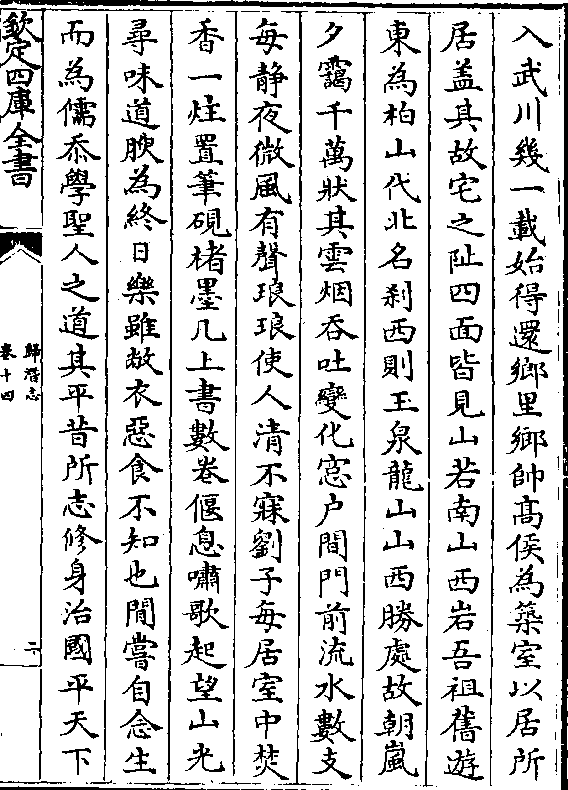 入武川幾一載始得還鄉里鄉帥髙侯為築室以居所
居盖其故宅之阯四面皆見山若南山西岩吾祖舊遊
東為柏山代北名刹西則玉泉龍山山西勝處故朝嵐
夕靄千萬狀其雲烟吞吐變化窓户間門前流水數支
每靜夜微風有聲琅琅使人清不寐劉子每居室中焚
香一炷置筆硯楮墨几上書數卷偃息嘯歌起望山光
尋味道腴為終日樂雖敝衣惡食不知也閒嘗自念生
而為儒忝學聖人之道其平昔所志修身治國平天下
欽定四庫全書
歸潛志
卷十四
二